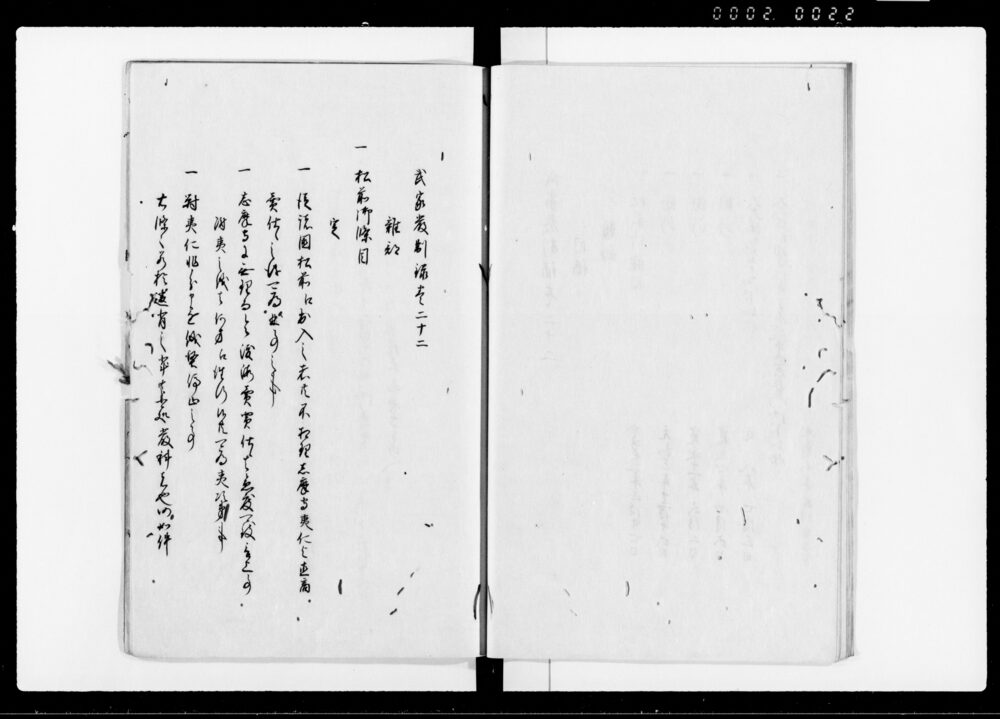 0002 0022
武家嚴制録巻二十二
雜部
一 松前御條目
定
一 従諸國松前江出入之者共不相理志摩守夷仁与直商
賣仕候儀可為曲事事
一 志摩守に無理而令渡海賣買仕候者急度可致言上事
附夷之儀者何方江往行候共可為夷次第事
一 對夷仁非分申懸儀堅停止之事
右條々若於違背之輩者可處嚴科者也仍如件